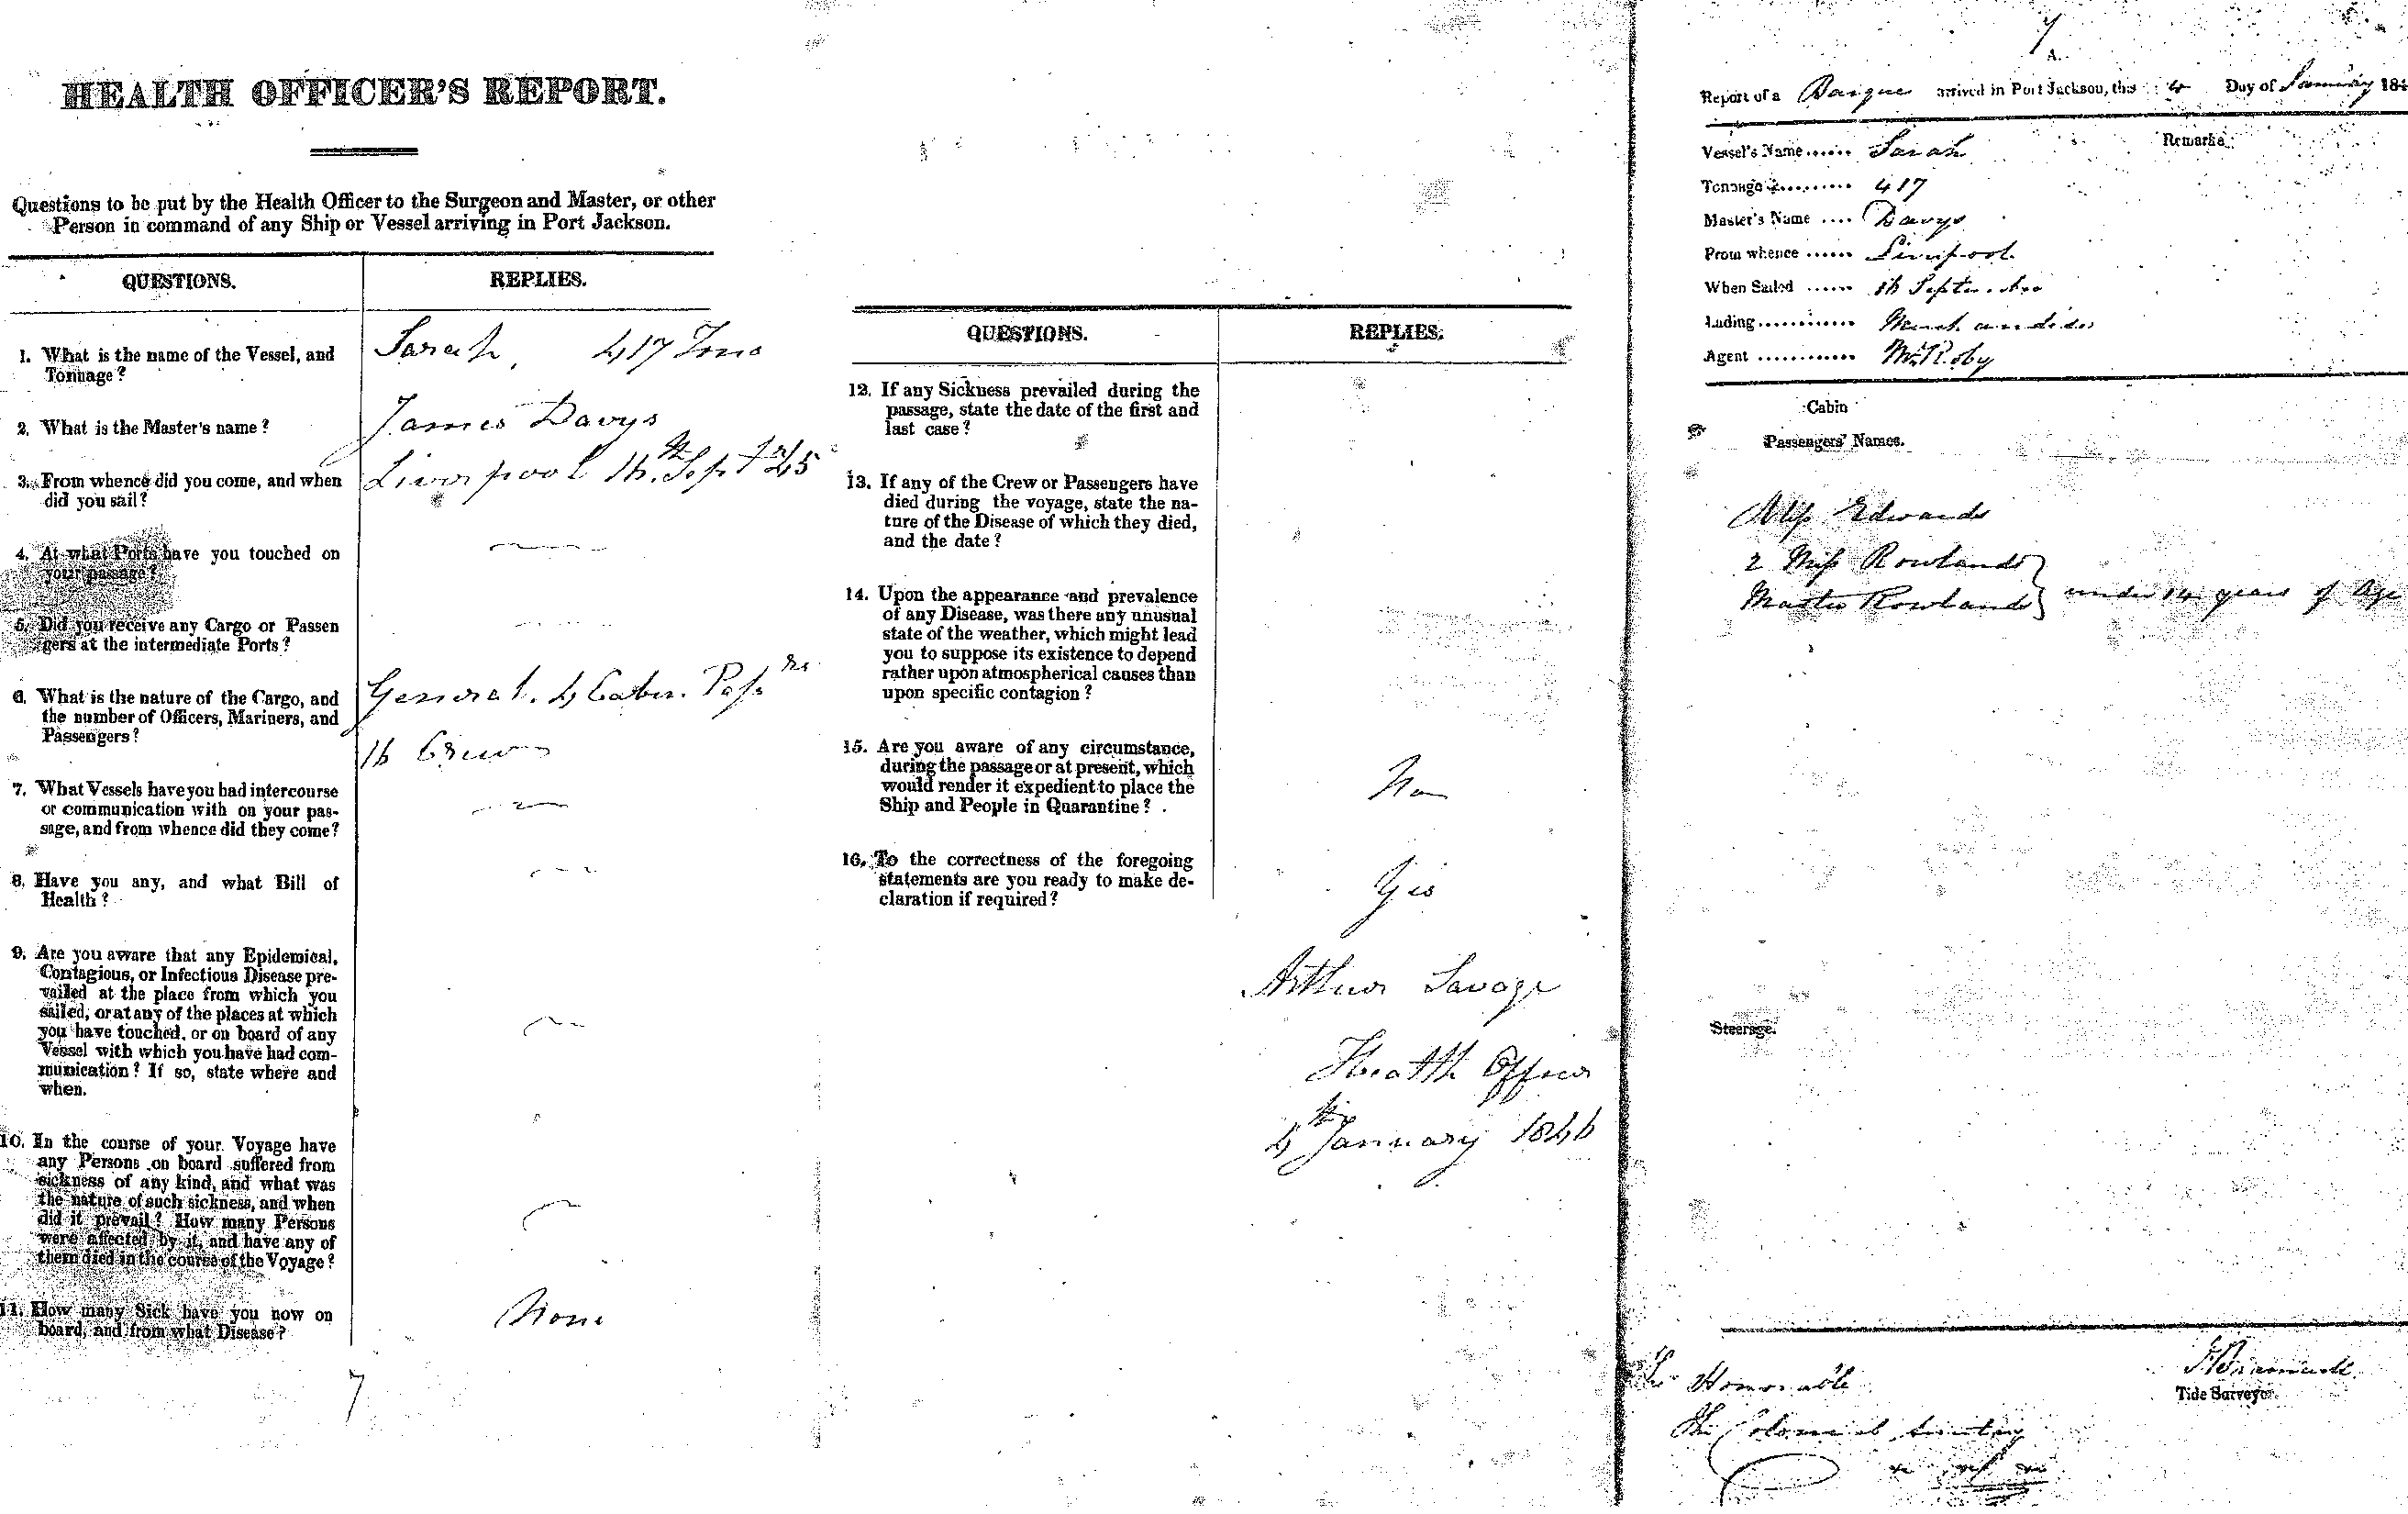 HEALTH OFFICER'S REPORT.
Questions to be put by the Health Officer to the Surgeon and Master, or other
Person in command of any Ship or Vessel arriving in Port Jackson.
QUESTIONS. REPLIES.
1. What is the name of the Vessel, and
Tonnage?
Sarah, 417 Tons
2. What is the Master's name?
James Davys
3. From whence did you come, and when
did you sail?
Liverpool 16th Sept 45
4. At what Ports have you touched on
your passage?
5. Did you receive any Cargo or Passen
gers at the intermediate Ports?
6. What is the nature of the Cargo, and
the number of Officers, Mariners, and
Passengers?
General. 4 Cabin. Passrs
16 Crew
7. What Vessels have you had intercourse
or communication with on your pas-
sage, and from whence did they come?
8. Have you any, and what Bill of
Health?
9. Are you aware that any Epidemical,
Contagious, or Infectious Disease pre-
vailed at the place from which you
sailed, or at any of the places at which
you have touched, or on board of any
Vessel with which you have had com-
munication? If so, state where and
when.
10. In the course of your Voyage have
any Persons on board suffered from
sickness of any kind, and what was
the nature of such sickness, and when
did it prevail? How many Persons
were affected by it, and have any of
them died in the course of the Voyage?
11. How many Sick have you now on
board, and from what Disease?
None
7
QUESTIONS. REPLIES.
12. If any Sickness prevailed during the
passage, state the date of the first and
last case?
13. If any of the Crew or Passengers have
died during the voyage, state the na-
ture of the Disease of which they died,
and the date?
14. Upon the appearance and prevalence
of any Disease, was there any unusual
state of the weather, which might lead
you to suppose its existence to depend
rather upon atmospherical causes than
upon specific contagion?
15. Are you aware of any circumstance,
during the passage or at present, which
would render it expedient to place the
Ship and People in Quarantine?
No
16. To the correctness of the foregoing
statements are you ready to make de-
claration if required?
Yes
Arthur Savage
Health Officer
4th January 1846
7
A.
Report of a Barque arrived in Port Jackson, this 4 Day of January 184
Vessel's Name...... Sarah
Remarks.
Tonnage.......... 417
Master's Name .... Davys
From whence ...... Liverpool
When Sailed ...... 16 September
Lading............ Merchandise
Agent ............
Cabin
Passengers' Names.
Miss Edwards
2 Miss Rowlands
Master Rowlands } under 14 years of Age
Steerage.
Tide Surveyor.
The Honorable
The Colonial Secretary